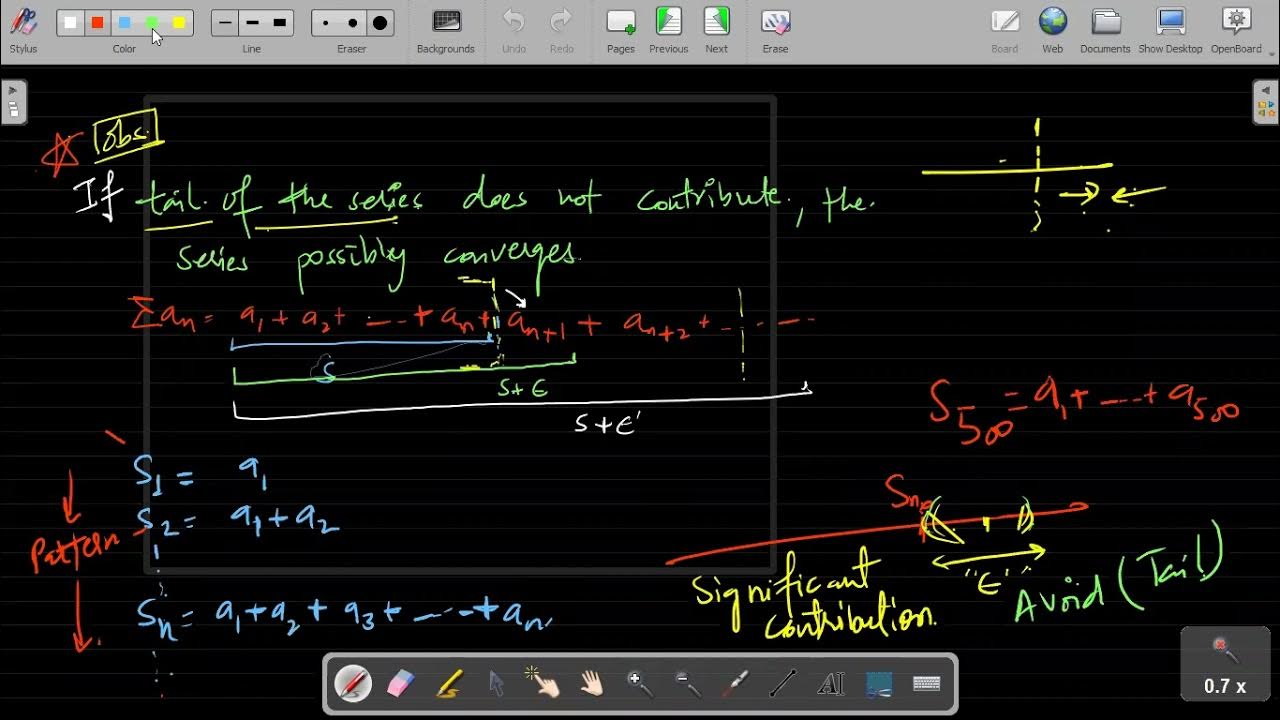 Stylus Color Line Eraser Backgrounds Undo Redo Pages Previous Next Erase Board Web Documents Show Desktop OpenBoard
obs.
If tail of the series does not contribute, the
series possibly converges.
Σan = a1 + a2 + ---- + an + an+1 + an+2 + ------
S
S+ε
S+ε'
S500 = a1 + ---- + a500
S1 = a1
S2 = a1+a2
Pattern
Sn = a1+a2 + a3 + ------+ an
Significant
contribution.
"ε"
Avoid (Tail)
0.7 x